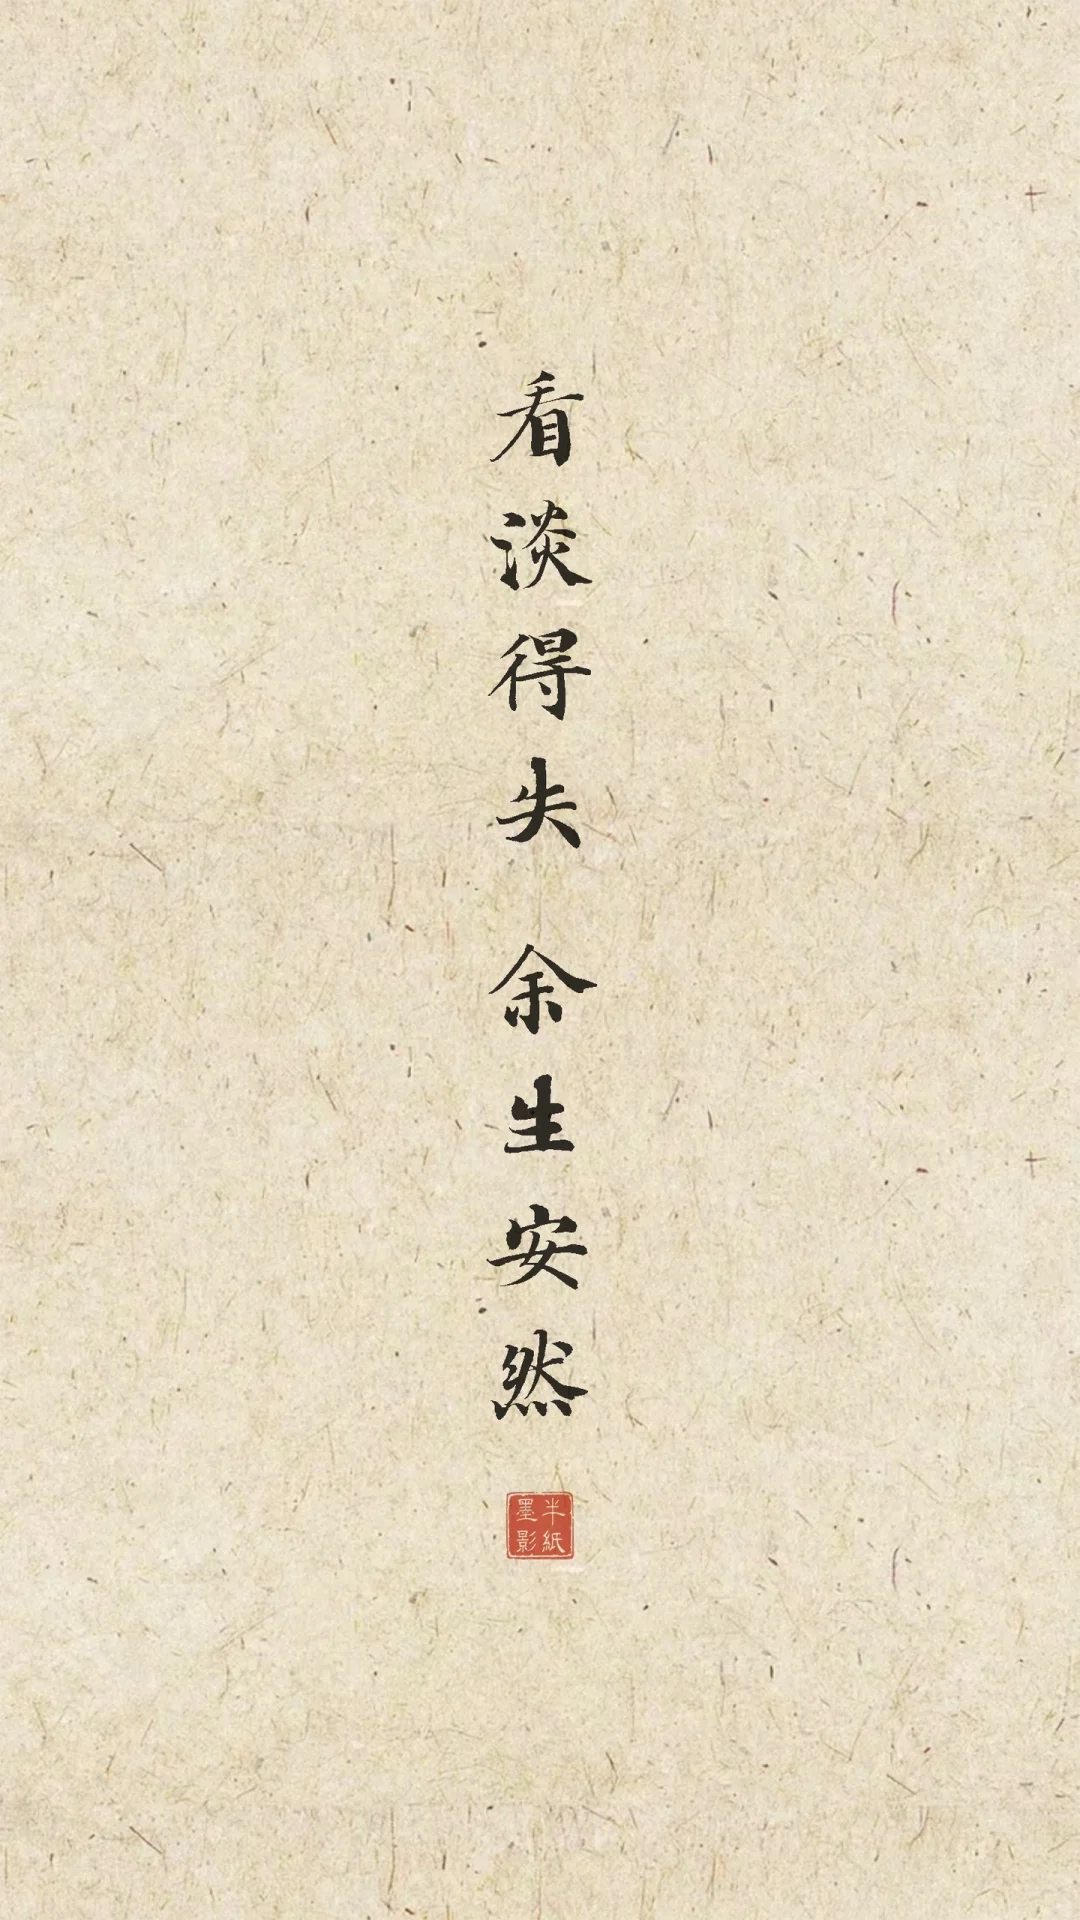 看淡得失
余生安然
半紙
墨影